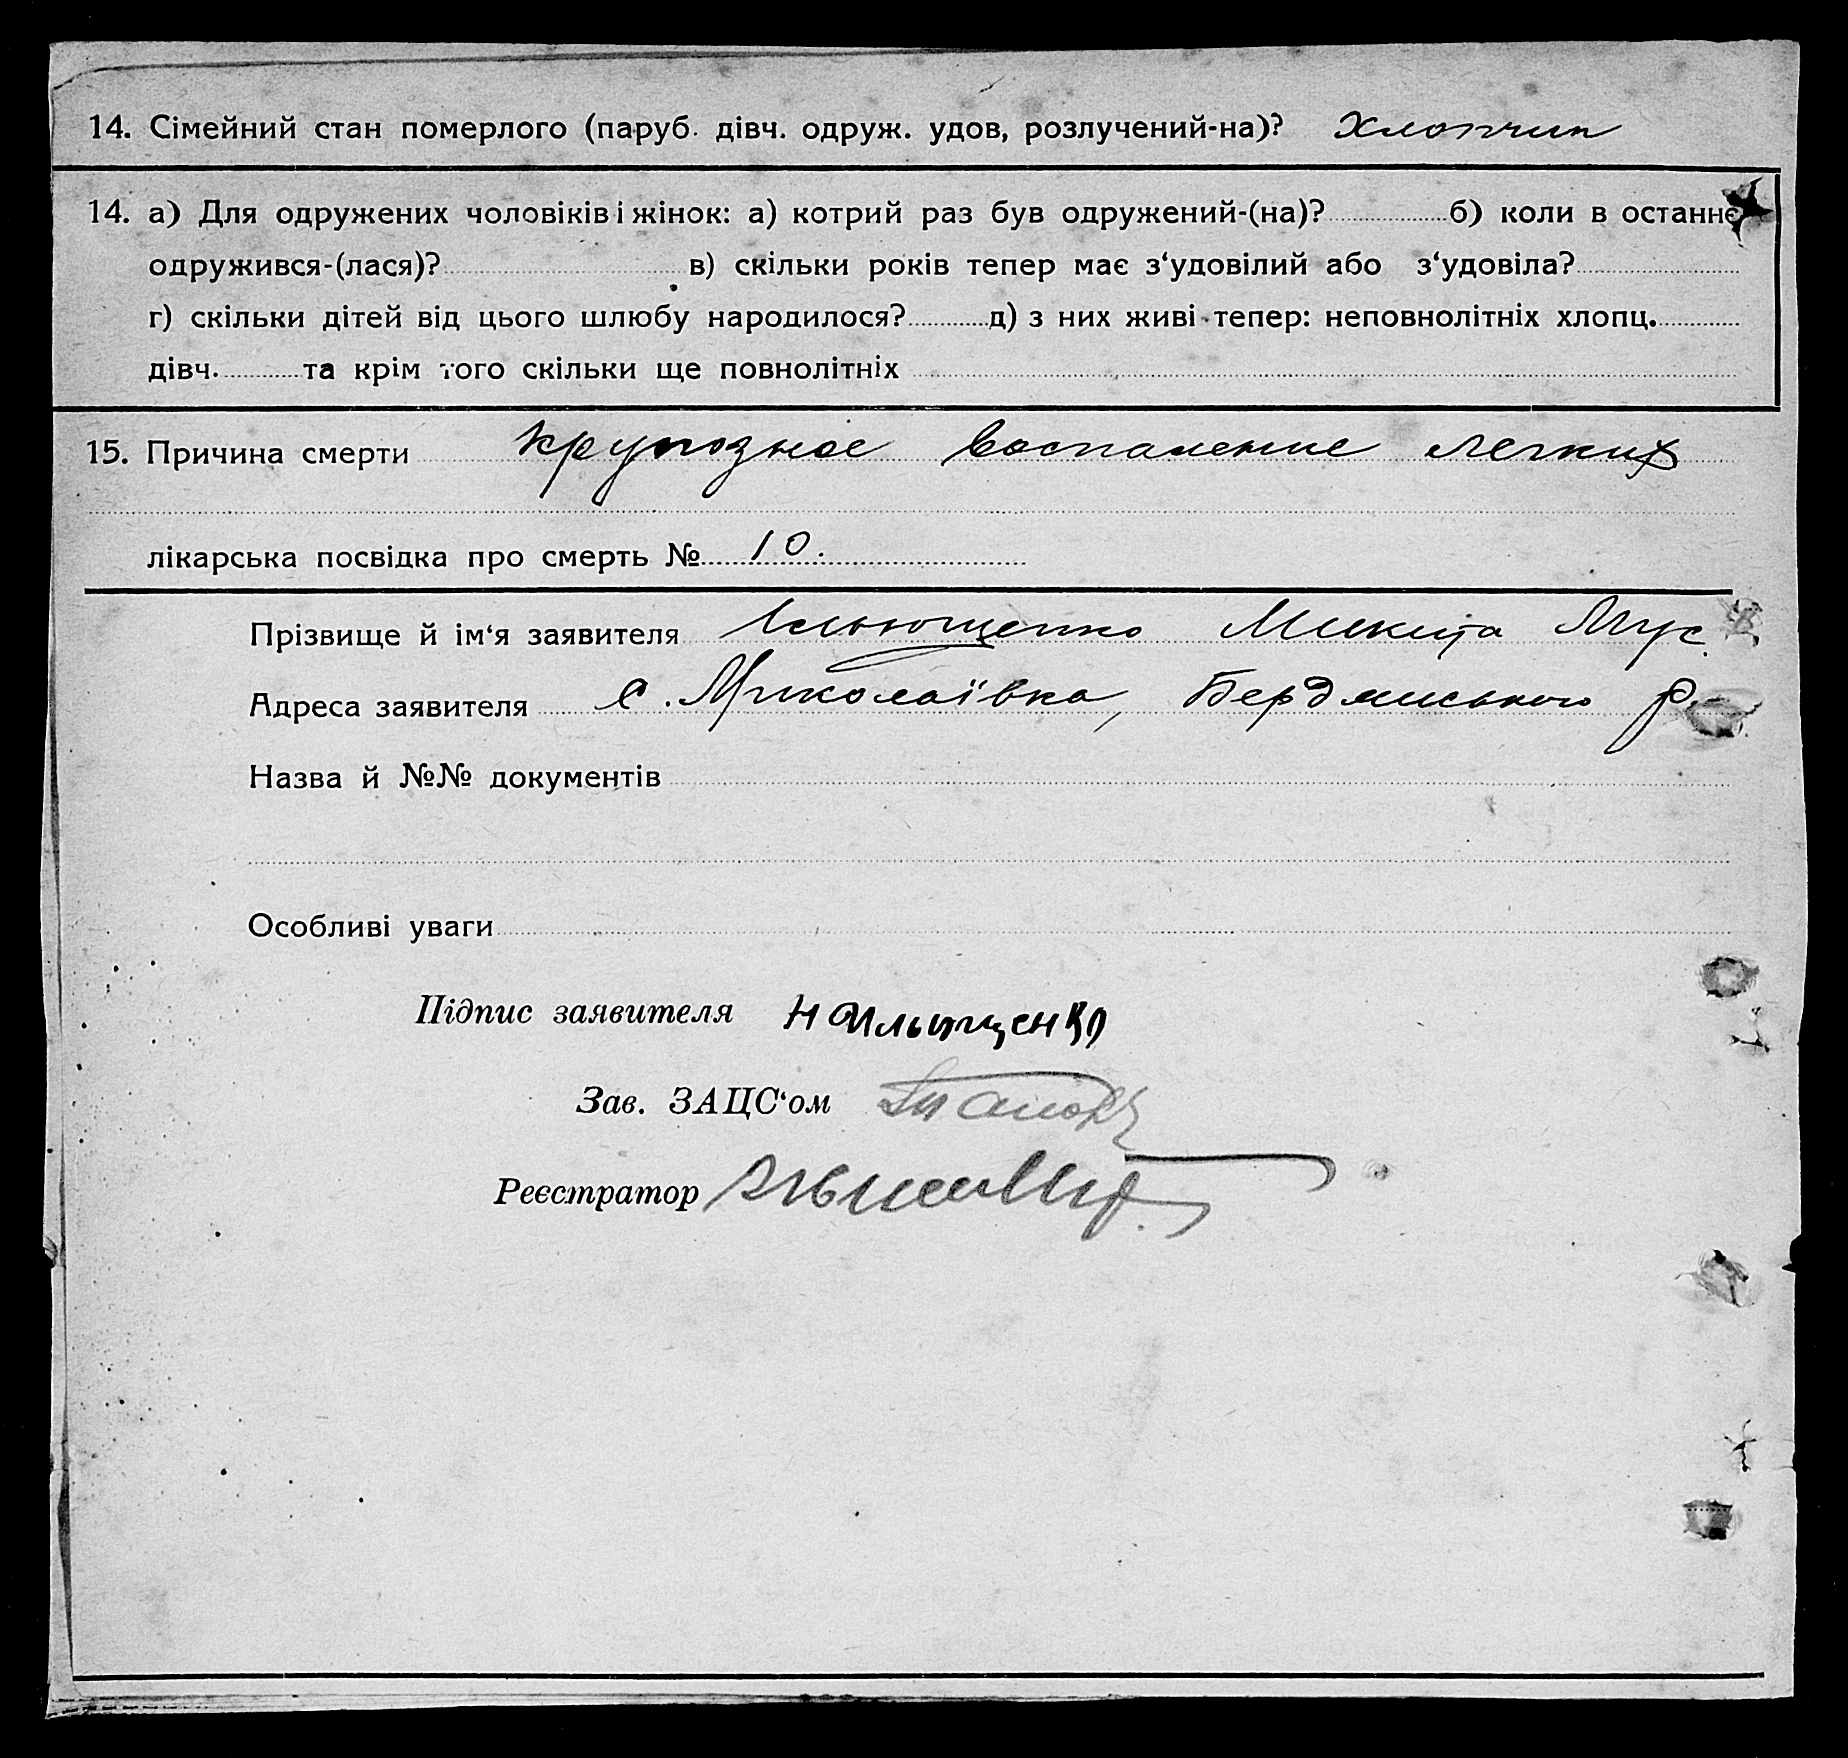 14. Сімейний стан померлого (паруб. дівч. одруж. удов, розлучений-на)? Хлопчик
14. а) Для одружених чоловіків і жінок: а) котрий раз був одружений-(на)? б) коли в останнє
одружився-(лася)? в) скільки років тепер має з‘удовілий або з‘удовіла?
г) скільки дітей від цього шлюбу народилося? д) з них живі тепер: неповнолітніх хлопц.
дівч. та крім того скільки ще повнолітніх
15. Причина смерти крупозное воспаление легких
лікарська посвідка про смерть № 10.
Прізвище й ім‘я заявителя Ильющенко Микита
Адреса заявителя с. Миколаївка, Бердянського р.
Назва й №№ документів
Особливі уваги
Підпис заявителя Н Ильющенко
Зав. ЗАЦС‘ом
Реєстратор